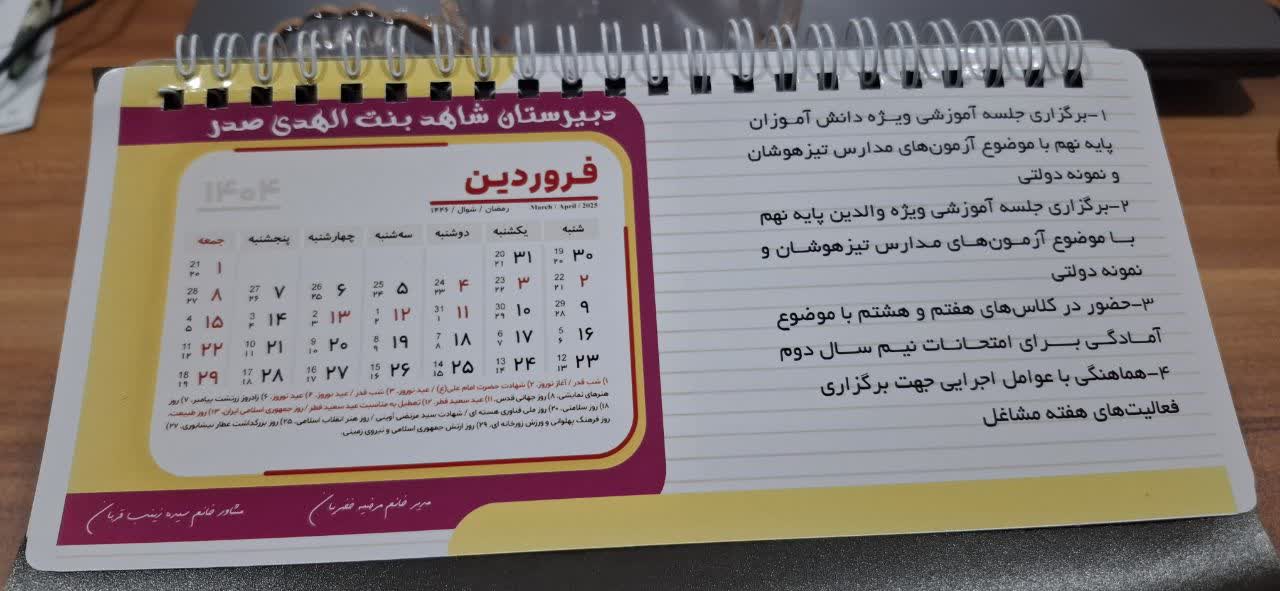 دبیرستان شاهد بنت الهدی صدر
فروردین
۱۴۰۴
March / April / 2025
رمضان / شوال / ۱۴۴۶
شنبه یکشنبه دوشنبه سه‌شنبه چهارشنبه پنجشنبه جمعه
۳۰ 19 ۲۰ ۳۱ 20 ۲۱ ۱ 21 ۲۰
۲ 22 ۲۱ ۳ 23 ۲۲ ۴ 24 ۲۳ ۵ 25 ۲۴ ۶ 26 ۲۵ ۷ 27 ۲۶ ۸ 28 ۲۷
۹ 29 ۲۸ ۱۰ 30 ۲۹ ۱۱ 31 ۱ ۱۲ 1 ۲ ۱۳ 2 ۳ ۱۴ 3 ۴ ۱۵ 4 ۵
۱۶ 5 ۶ ۱۷ 6 ۷ ۱۸ 7 ۸ ۱۹ 8 ۹ ۲۰ 9 ۱۰ ۲۱ 10 ۱۱ ۲۲ 11 ۱۲
۲۳ 12 ۱۳ ۲۴ 13 ۱۴ ۲۵ 14 ۱۵ ۲۶ 15 ۱۶ ۲۷ 16 ۱۷ ۲۸ 17 ۱۸ ۲۹ 18 ۱۹
۱) شب قدر / آغاز نوروز. ۲) شهادت حضرت امام علی(ع) / عید نوروز. ۳) شب قدر / عید نوروز. ۴) عید نوروز. ۶) زادروز زرتشت پیامبر. ۷) روز
هنرهای نمایشی. ۸) روز جهانی قدس. ۱۱) عید سعید فطر. ۱۲) تعطیل به مناسبت عید سعید فطر / روز جمهوری اسلامی ایران. ۱۳) روز طبیعت.
۱۸) روز سلامتی. ۲۰) روز ملی فناوری هسته ای / شهادت سید مرتضی آوینی / روز هنر انقلاب اسلامی. ۲۵) روز بزرگداشت عطار نیشابوری. ۲۷)
روز فرهنگ پهلوانی و ورزش زورخانه ای. ۲۹) روز ارتش جمهوری اسلامی و نیروی زمینی.
مدیر خانم مرضیه
مشاور خانم سیده زینب
۱-برگزاری جلسه آموزشی ویژه دانش آموزان
پایه نهم با موضوع آزمون‌های مدارس تیزهوشان
و نمونه دولتی
۲-برگزاری جلسه آموزشی ویژه والدین پایه نهم
با موضوع آزمون‌های مدارس تیزهوشان و
نمونه دولتی
۳-حضور در کلاس‌های هفتم و هشتم با موضوع
آمادگی برای امتحانات نیم سال دوم
۴-هماهنگی با عوامل اجرایی جهت برگزاری
فعالیت‌های هفته مشاغل